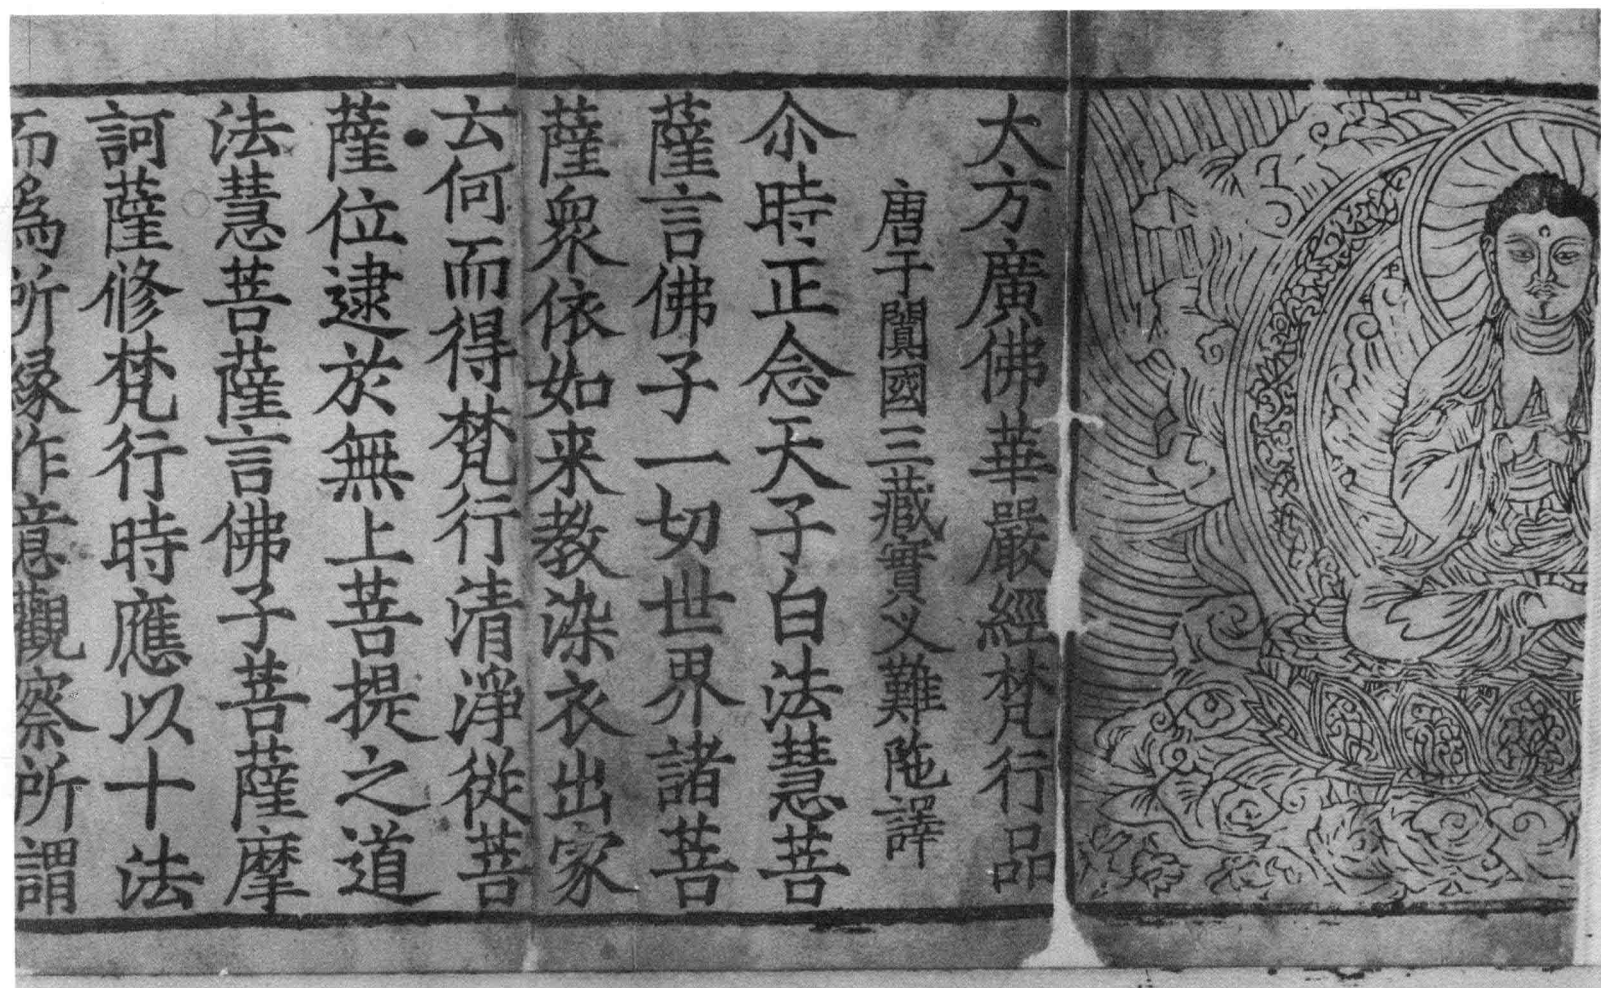 大方廣佛華嚴經梵行品
唐于闐國三藏實叉難陁譯
尒時正念天子白法慧菩
薩言佛子一切世界諸菩
薩衆依如来教染衣出家
云何而得梵行清淨從菩
薩位逮於無上菩提之道
法慧菩薩言佛子菩薩摩
訶薩修梵行時應以十法
而爲所緣作意觀察所謂